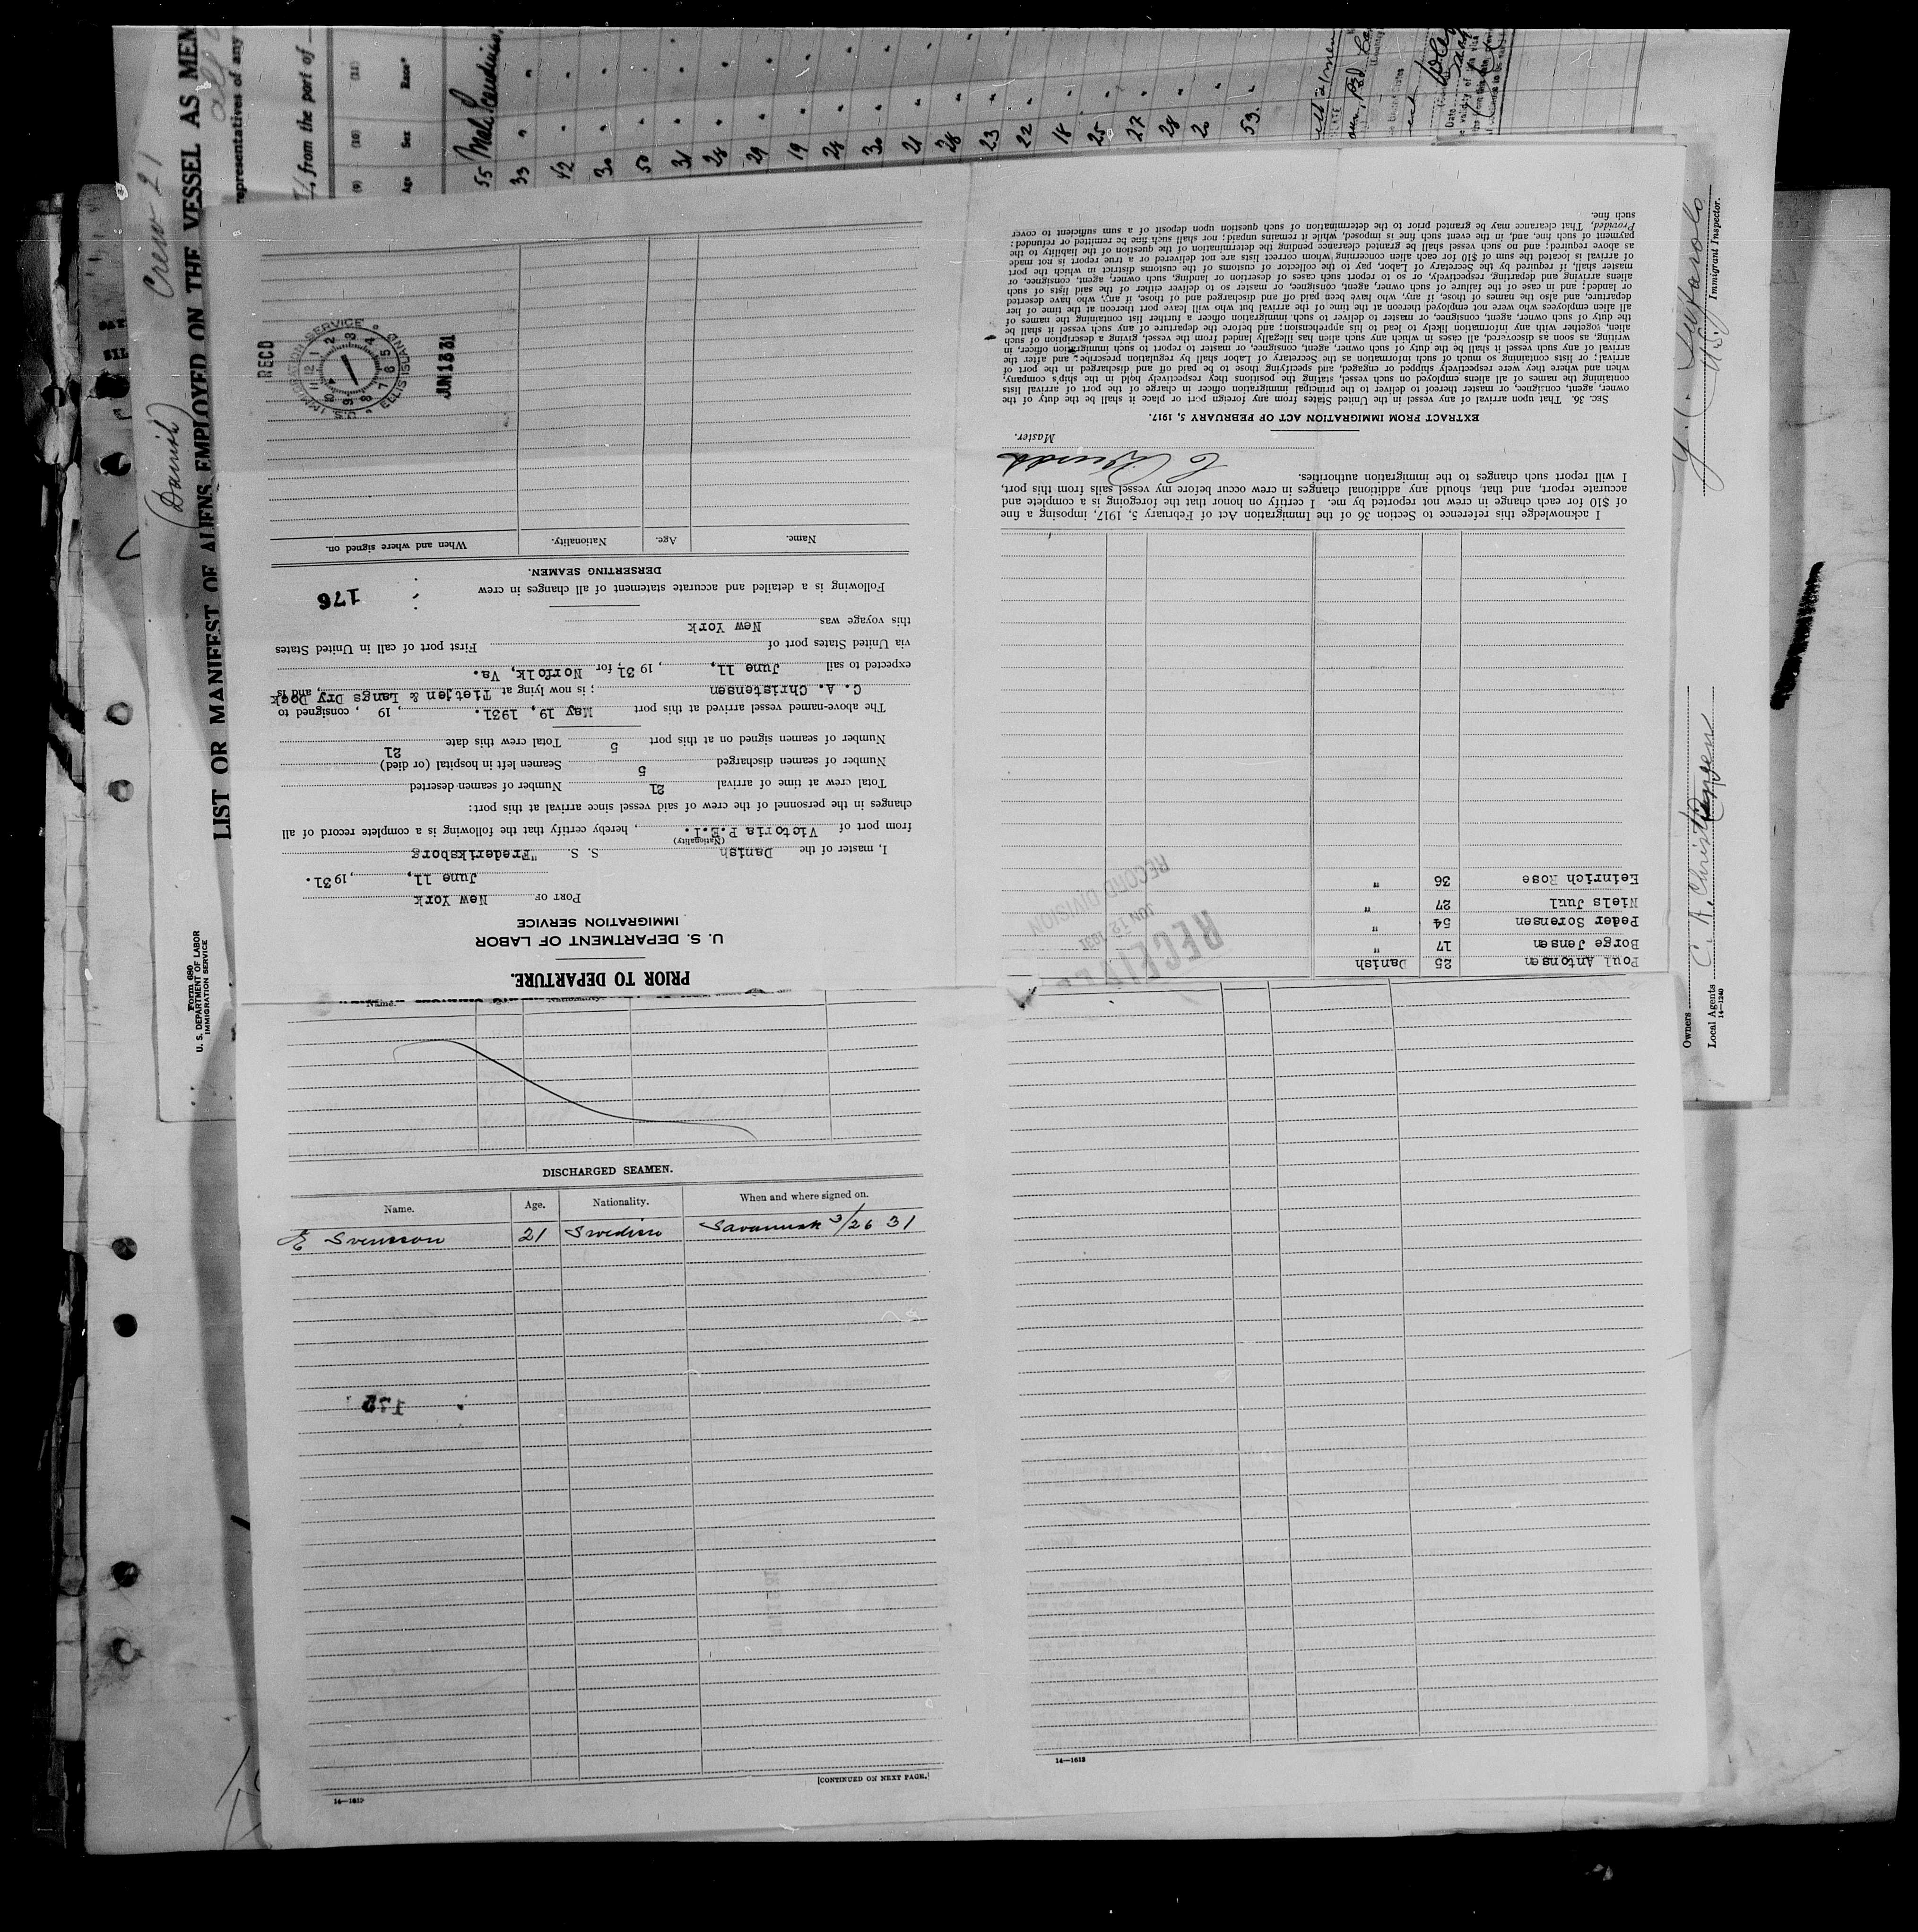 PRIOR TO DEPARTURE.
U. S. DEPARTMENT OF LABOR
IMMIGRATION SERVICE
PORT OF New York
June 11, , 1931.
I, master of the Danish S. S. "Frederiksborg
(Nationality)
from port of Victoria P.E.I. , hereby certify that the following is a complete record of all
changes in the personnel of the crew of said vessel since arrival at this port:
Total crew at time of arrival 21 Number of seamen deserted
Number of seamen discharged 5 Seamen left in hospital (or died)
Number of seamen signed on at this port 5 Total crew this date 21
The above-named vessel arrived at this port May 19, 1931. , 19 , consigned to
C. A. Christensen ; is now lying at Tietjen & Langs Dry Dock , and is
expected to sail June 11, , 1931, for Norfolk, Va.
via United States port of First port of call in United States
this voyage was New York
Following is a detailed and accurate statement of all changes in crew
176
DERSERTING SEAMEN.
Name. Age. Nationality. When and where signed on.
RECD
U.S. IMMIGRATION SERVICE
ELLIS ISLAND
JUN 13 31
Poul Antonsen 25 Danish
Borge Jensen 17 "
Peder Sorensen 54 "
Niels Juul 27 "
Heinrich Rose 36 "
RECEIVED
JUN 12 1931
RECORD DIVISION
I acknowledge this reference to Section 36 of the Immigration Act of February 5, 1917, imposing a fine
of $10 for each change in crew not reported by me. I certify on honor that the foregoing is a complete and
accurate report, and that, should any additional changes in crew occur before my vessel sails from this port,
I will report such changes to the immigration authorities.
Master.
EXTRACT FROM IMMIGRATION ACT OF FEBRUARY 5, 1917.
SEC. 36. That upon arrival of any vessel in the United States from any foreign port or place it shall be the duty of the
owner, agent, consignee, or master thereof to deliver to the principal immigration officer in charge of the port of arrival lists
containing the names of all aliens employed on such vessel, stating the positions they respectively held in the ship's company,
when and where they were respectively shipped or engaged, and specifying those to be paid off and discharged in the port of
arrival; or lists containing so much of such information as the Secretary of Labor shall by regulation prescribe; and after the
arrival of any such vessel it shall be the duty of such owner, agent, consignee, or master to report to such immigration officer, in
writing, as soon as discovered, all cases in which any such alien has illegally landed from the vessel, giving a description of such
alien, together with any information likely to lead to his apprehension; and before the departure of any such vessel it shall be
the duty of such owner, agent, consignee, or master to deliver to such immigration officer a further list containing the names of
all alien employees who were not employed thereon at the time of the arrival but who will leave port thereon at the time of her
departure, and also the names of those, if any, who have been paid off and discharged and of those, if any, who have deserted
or landed; and in case of the failure of such owner, agent, consignee, or master so to deliver either of the said lists of such
aliens arriving and departing, respectively, or so to report such cases of desertion or landing, such owner, agent, consignee, or
master shall, if required by the Secretary of Labor, pay to the collector of customs of the customs district in which the port
of arrival is located the sum of $10 for each alien concerning whom correct lists are not delivered or a true report is not made
as above required; and no such vessel shall be granted clearance pending the determination of the question of the liability to the
payment of such fine, and, in the event such fine is imposed, while it remains unpaid; nor shall such fine be remitted or refunded:
Provided, That clearance may be granted prior to the determination of such question upon deposit of a sum sufficient to cover
such fine.
DISCHARGED SEAMEN.
Name. Age. Nationality. When and where signed on.
E Svensson 21 Swedish Savannah 3/26 31
[CONTINUED ON NEXT PAGE.]
14—1613
14—1613
Form 680
U. S. DEPARTMENT OF LABOR
IMMIGRATION SERVICE
Crew 21
(Danish)
LIST OR MANIFEST OF ALIENS EMPLOYED ON THE VESSEL AS MEM
epresentatives of any
from the port of
(9) (10) (11)
Age Sex Race*
55 Male Scandinav.
33 " "
42 " "
30 " "
50 " "
31 " "
28 " "
29 " "
19 " "
28 " "
30 " "
21 " "
28 " "
23 " "
22 " "
18 " "
25 " "
27 " "
28 " "
20 " "
53 "
Immigrant Inspector.
Owners
Local Agents C. A. Christensen
14—1240